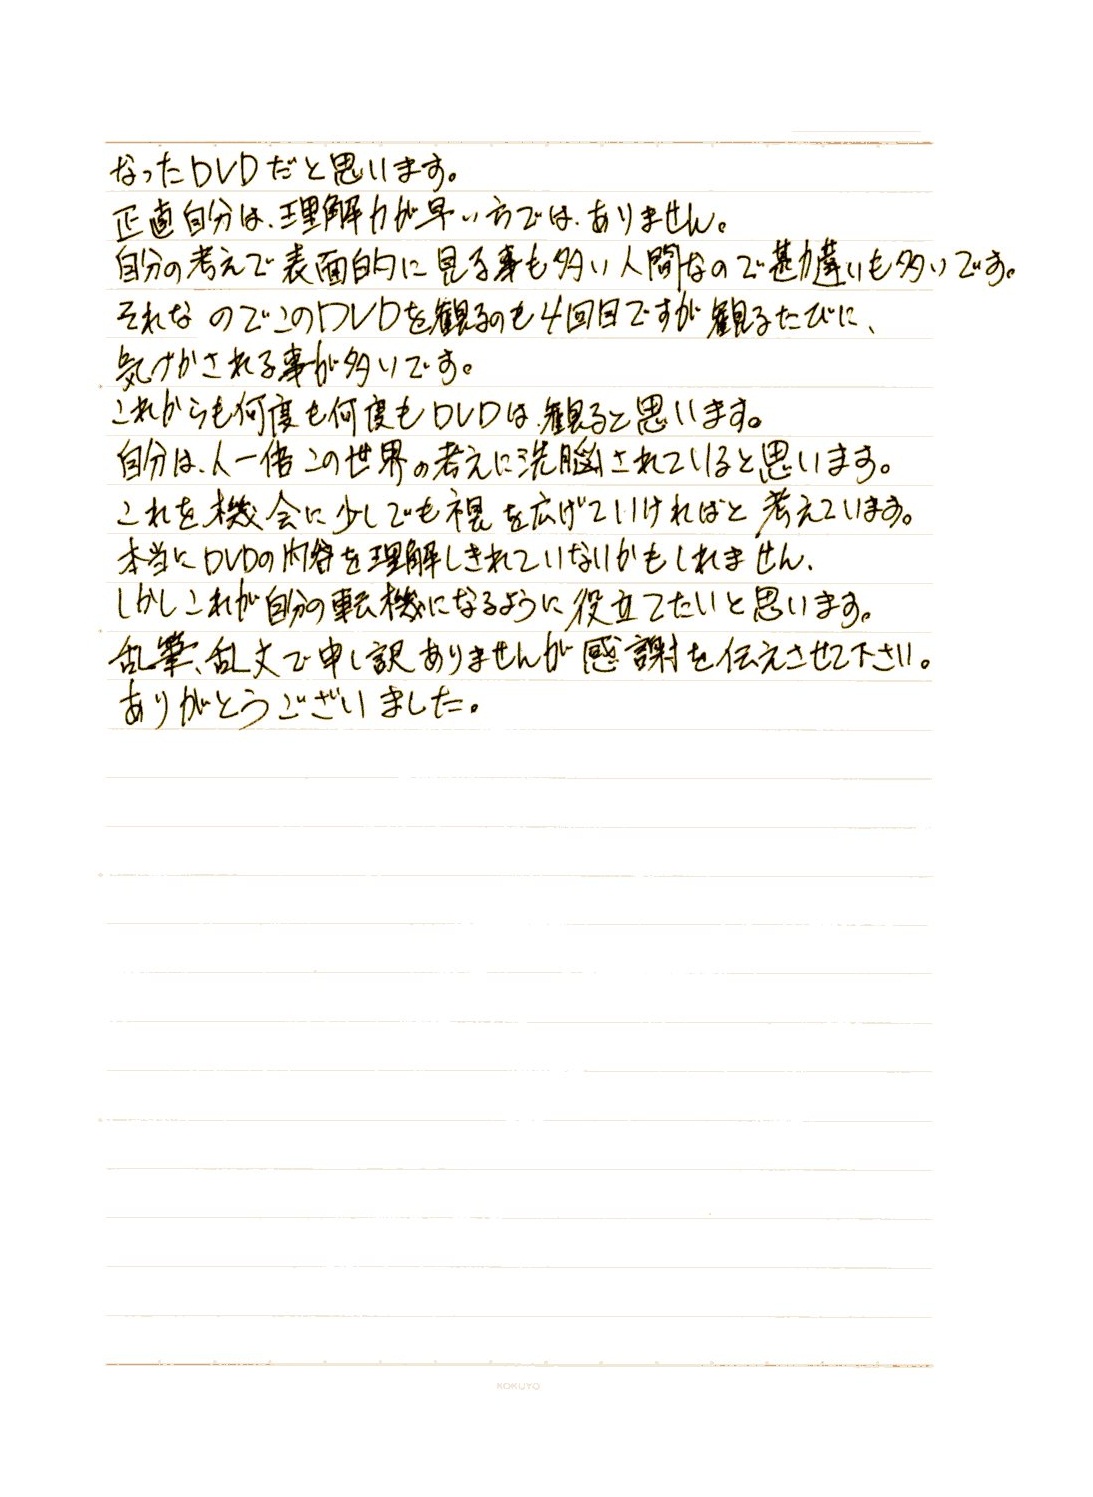 なったDVDだと思います。
正直自分は、理解力が早い方では、ありません。
自分の考えで表面的に見る事も多い人間なので勘違いも多いです。
それなのでこのDVDを観るのも4回目ですが観るたびに、
気づかされる事が多いです。
これからも何度も何度もDVDは、観ると思います。
自分は、人一倍この世界の考えに洗脳されていると思います。
これを機会に少しでも視を広げていければと考えています。
本当にDVDの内容を理解しきれていないかもしれません、
しかしこれが自分の転機になるように役立てたいと思います。
乱筆、乱文で申し訳ありませんが感謝を伝えさせて下さい。
ありがとうございました。
KOKUYO